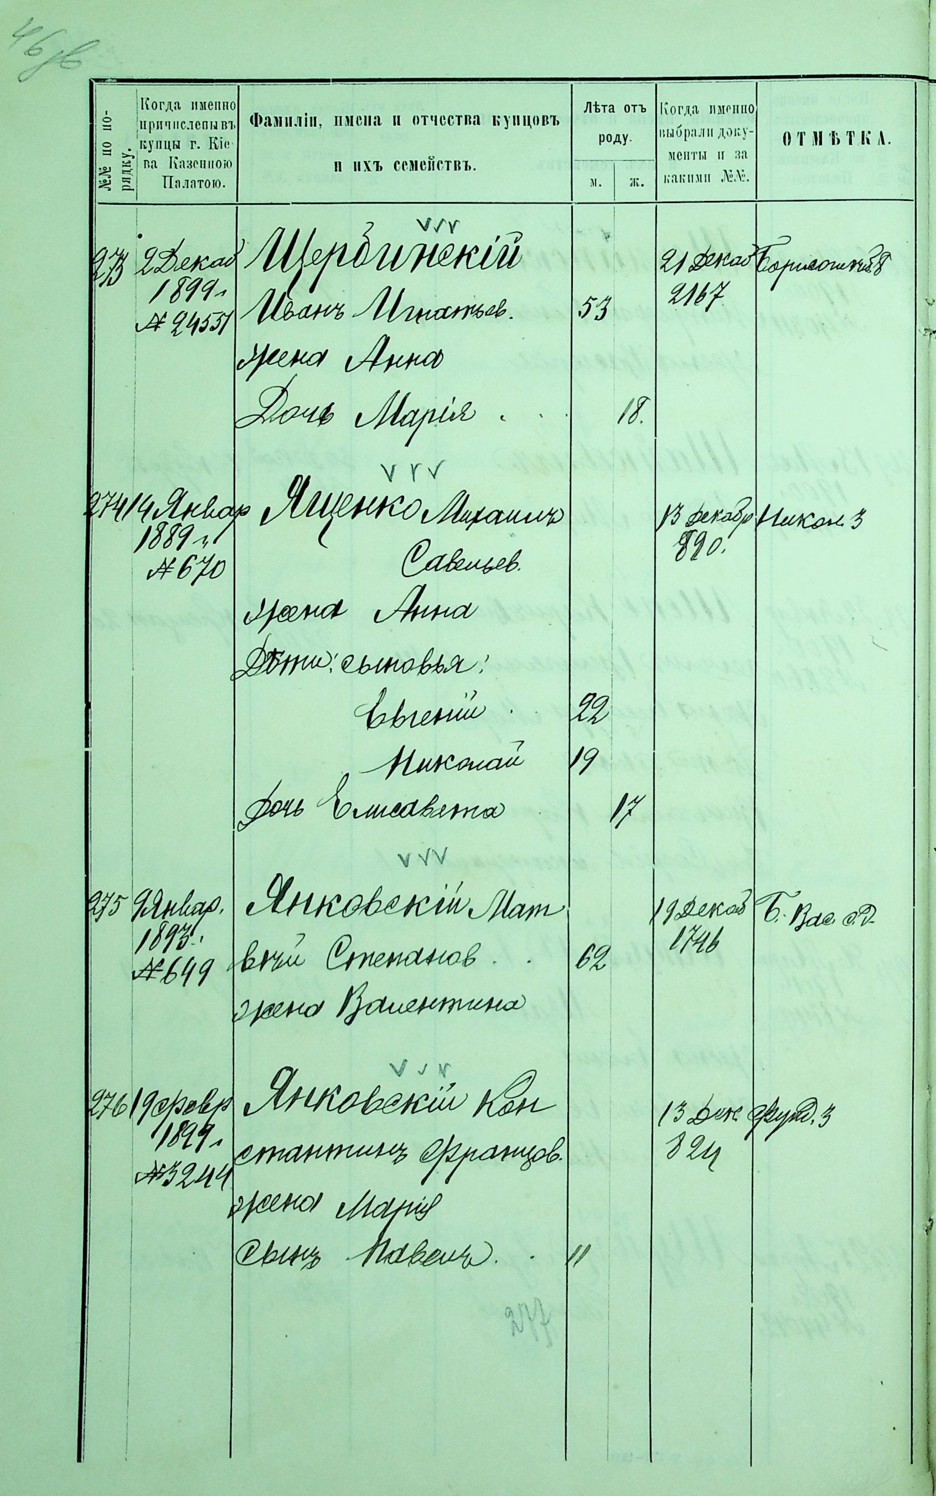 46 об
№№ по по-
рядку.
Когда именно
причислены въ
купцы г. Кіе-
ва Казенною
Палатою.
Фамиліи, имена и отчества купцовъ
и ихъ семействъ.
Лѣта отъ
роду.
м.
ж.
Когда именно
выбрали доку-
менты и за
какими №№.
ОТМѢТКА.
273 2 Декаб Щербинскій 21 Декаб
1899 г 2167
№ 24551 Иванъ Игнатьев. 53
жена Анна
Дочь Марія . . 18.
274 14 Январ Ященко Михаилъ 13 декабр Никол. 3
1889 г. Савельев. 890.
№ 670
жена Анна
Дѣти: сыновья:
Евгеній . 22
Николай 19
Дочь Елисавета . 17
275 9 Январ. Янковскій Мат 19 Декаб Б. Вас. с.д.
1893 г. 1746
№ 649 вѣй Степанов . . 62
жена Валентина
276 19 февр Янковскій Кон 13 Дек Фунд. 3
1899 г 824
№ 3244 стантинъ Францов.
жена Марія
Сынъ Павелъ . . 11
277